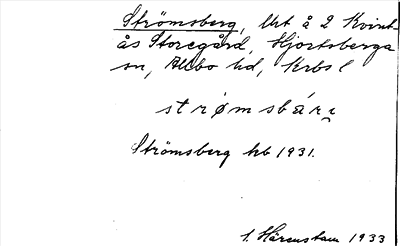 Strömsberg, lht å 2 Kvint-
ås Storegård, Hjortsberga
sn, Allbo hd, Krbs l
strømsbár
Strömsberg hb 1931.
S. Härenstam 1933